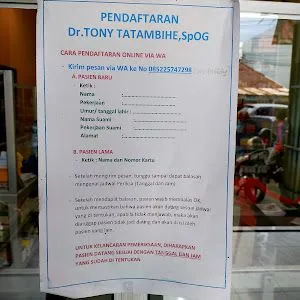 PENDAFTARAN
Dr.TONY TATAMBIHE,SpOG
CARA PENDAFTARAN ONLINE VIA WA
- Kirim pesan via WA ke No 085225747298
A. PASIEN BARU
- Ketik :
Nama :
Pekerjaan :
Umur/ tanggal lahir :
Nama Suami :
Pekerjaan Suami :
Alamat :
B. PASIEN LAMA
- Ketik : Nama dan Nomor Kartu
- Setelah mengirim pesan, tunggu sampai dapat balasan
mengenai jadwal Periksa (Tanggal dan Jam)
- Setelah mendapat balasan, pasien wajib membalas OK,
untuk memastikan bahwa pasien akan datang sesuai jadwal
yang di tentukan, apabila tidak menjawab, maka akan
dianggap pasien tidak jadi datang dan akan di isi oleh
pasien yang lain.
UNTUK KELANCARAN PEMERIKSAAN, DIHARAPKAN
PASIEN DATANG SESUAI DENGAN TANGGAL DAN JAM
YANG SUDAH DI TENTUKAN